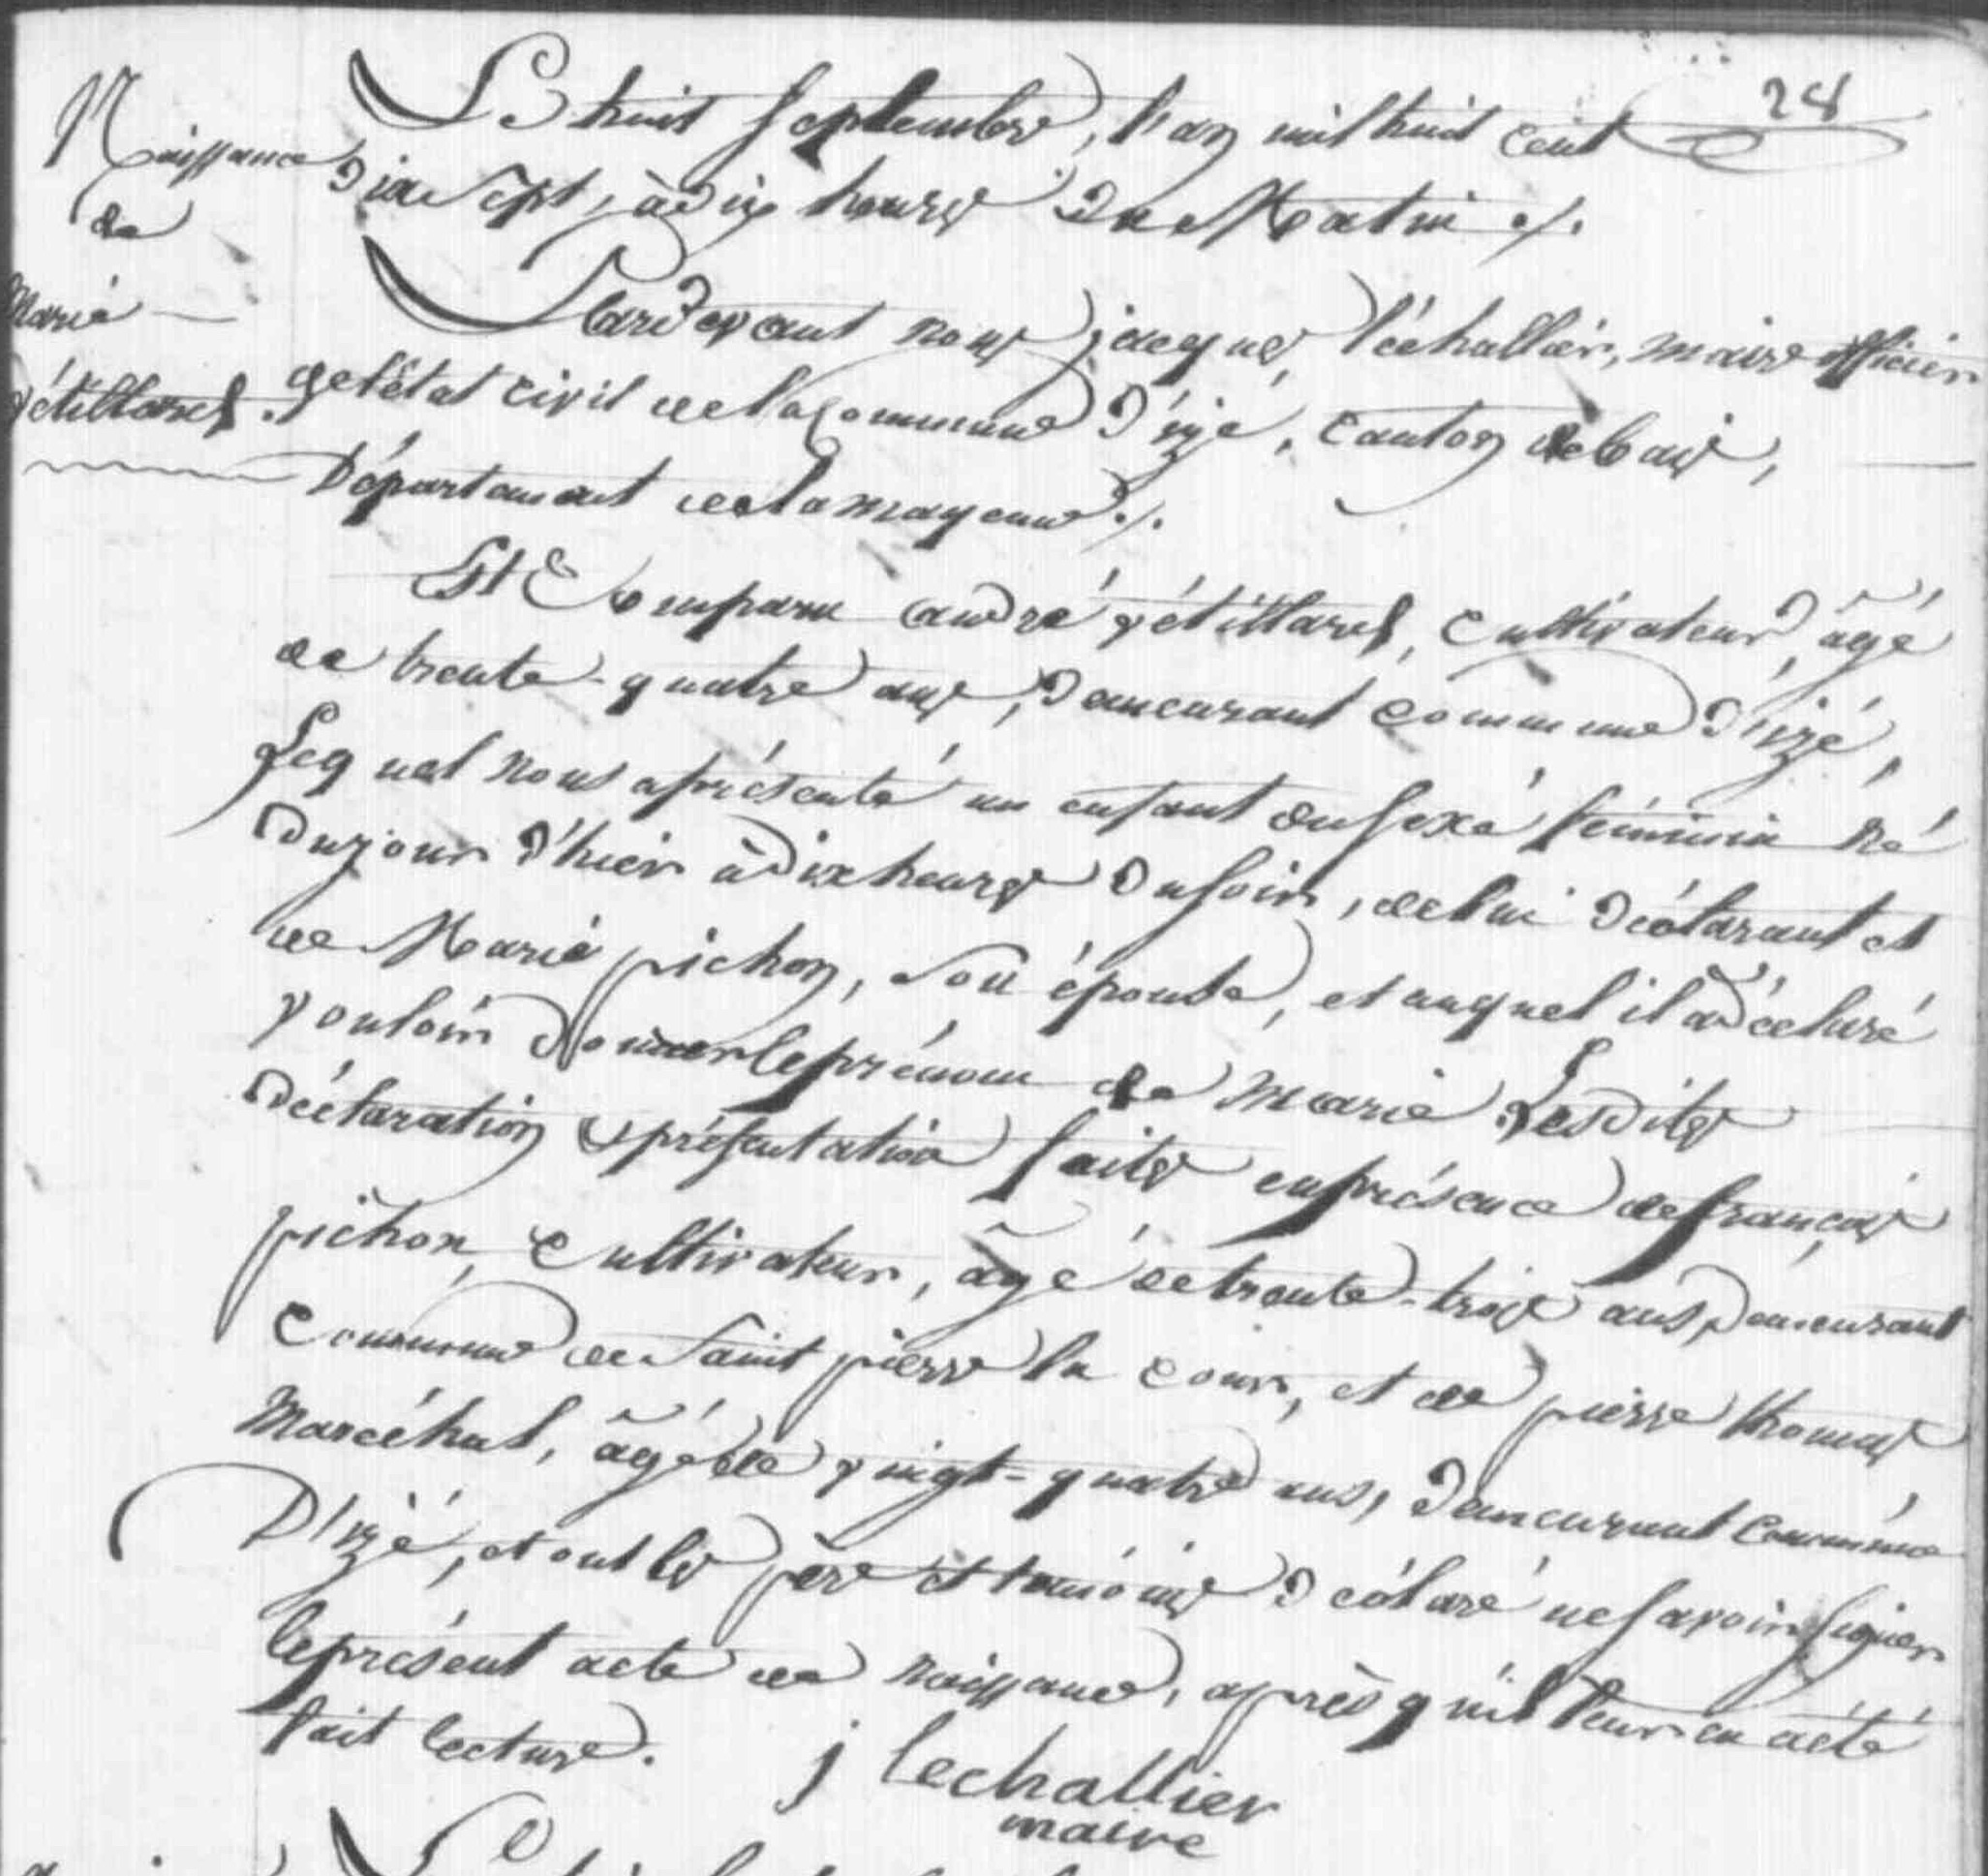 28
Naissance
de
Marie
vétillard.
Le huit septembre, l'an mil huit cent
dix sept, à dix heures du Matin ./.
Pardevant nous jacques, lééhallier, maire officier
de l'état civil de la commune d'izé, canton de bais,
Département de la mayenne ./.
Est Comparu andré vétillard, cultivateur, âgé
de trente-quatre ans, demeurant commune d'izé,
Lequel nous a présenté un enfant du sexe féminin né
du jour d'hier à dix heures du soir, de lui déclarant et
de Marie pichon, son épouse, et auquel il a déclaré
vouloir donner le prénom de marie Lesdites
déclaration & présentation faites en présence de françois
pichon, cultivateur, âgé de trente-trois ans, demeurant
commune de saint pierre la cour, et de pierre thomas,
Maréchal, âgé de vingt-quatre ans, demeurant commune
D'izé, et ont les père et témoins déclaré ne savoir signer
le présent acte de naissance, après qu'il leur en a été
fait lecture.
j lechallier
maire